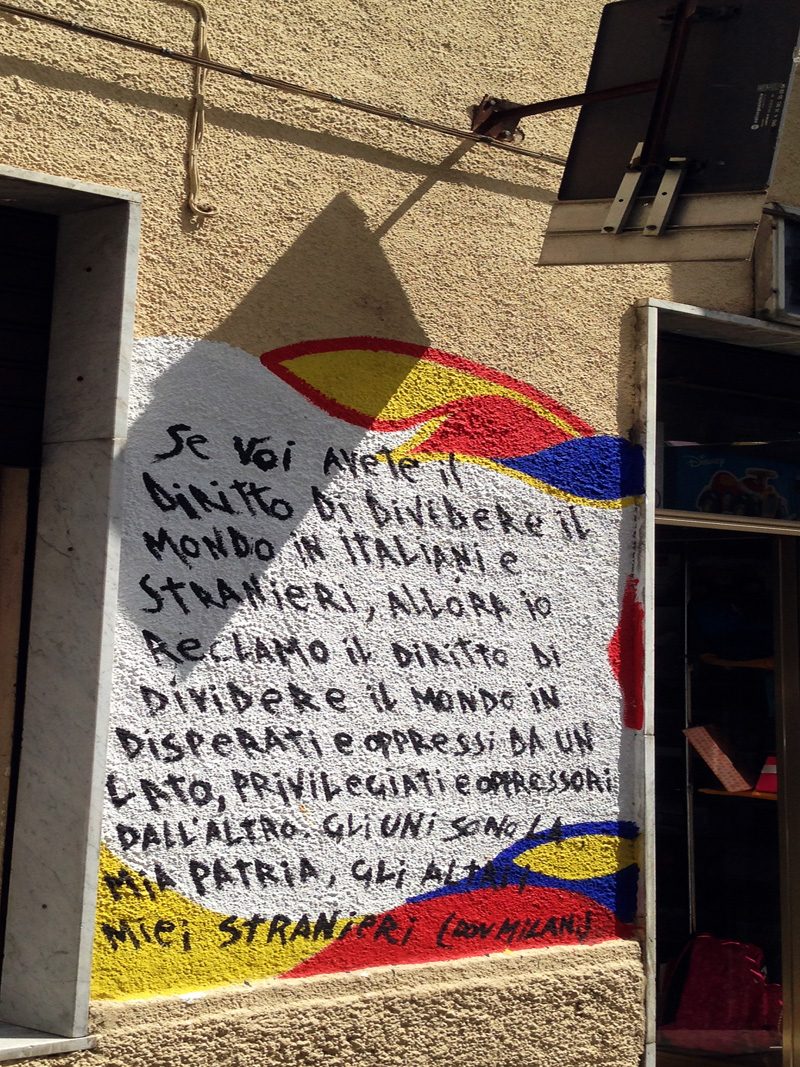 Se voi avete il
DIRITTO DI DIVIDERE IL
MONDO IN ITALIANI e
STRANIERI, ALLORA IO
RECLAMO IL DIRITTO DI
DIVIDERE IL MONDO IN
DISPERATI e OPPRESSI DA UN
LATO, PRIVILEGIATI e OPPRESSORI
DALL'ALTRO. GLI UNI SONO LA
MIA PATRIA, GLI ALTRI I
MIEI STRANIERI (DON MILANI)
Disney